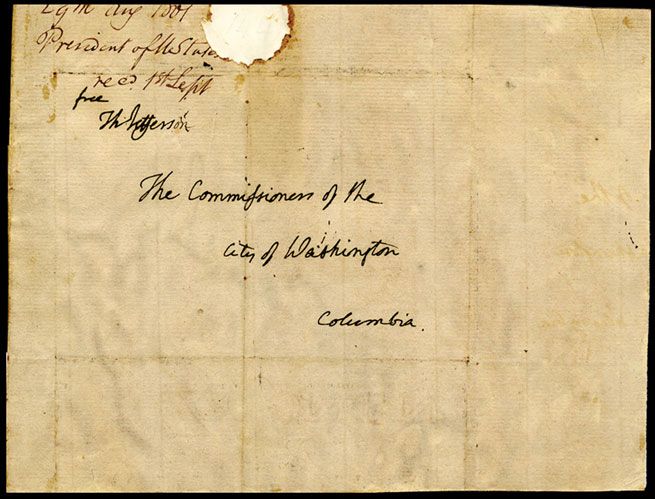 29th Aug 1801
President of UStates
recd. 1st Sept
free
Th: Jefferson
The Commissioners of the
City of Washington
Columbia.